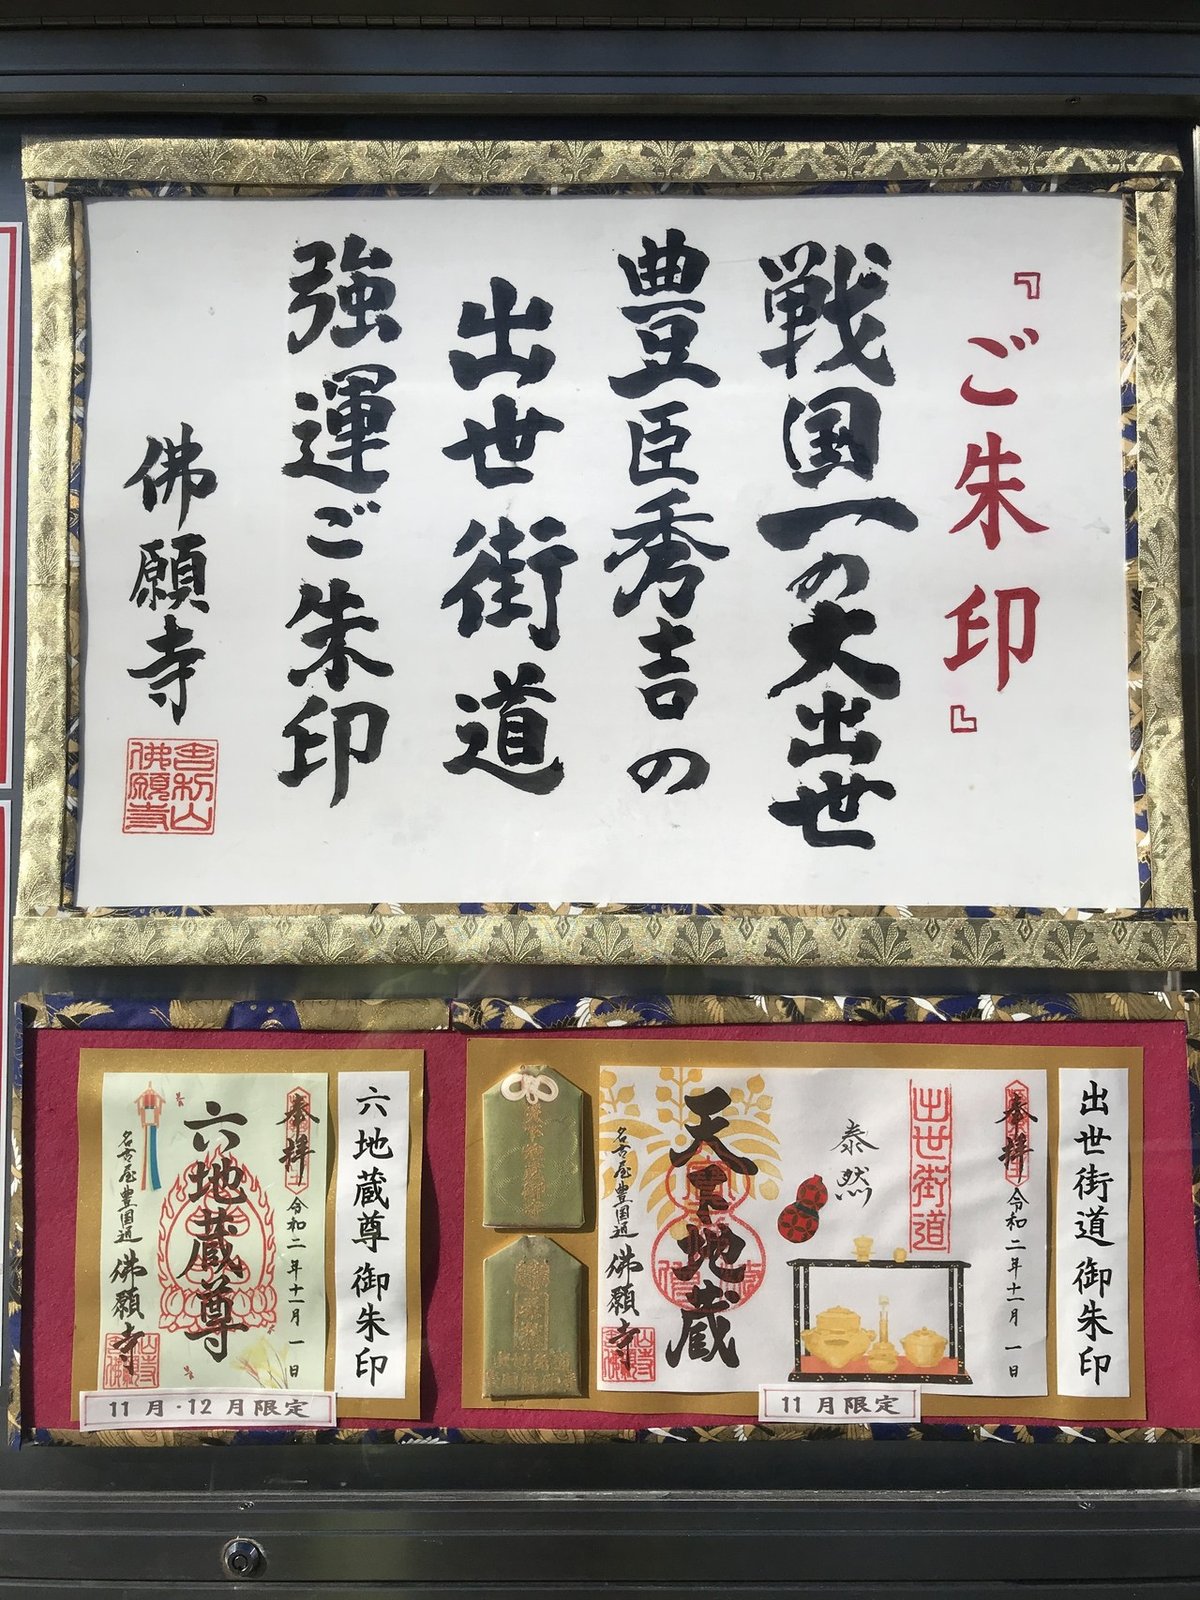 『ご朱印』
戦国一の大出世
豊臣秀吉の
出世街道
強運ご朱印
佛願寺
舎利山
佛願寺
出世街道御朱印
奉拝
令和二年十一月一日
出世街道
泰然
天下地蔵
名古屋豊国道
佛願寺
11月限定
六地蔵尊御朱印
奉拝
令和二年十一月一日
六地蔵尊
名古屋豊国道
佛願寺
11月・12月限定